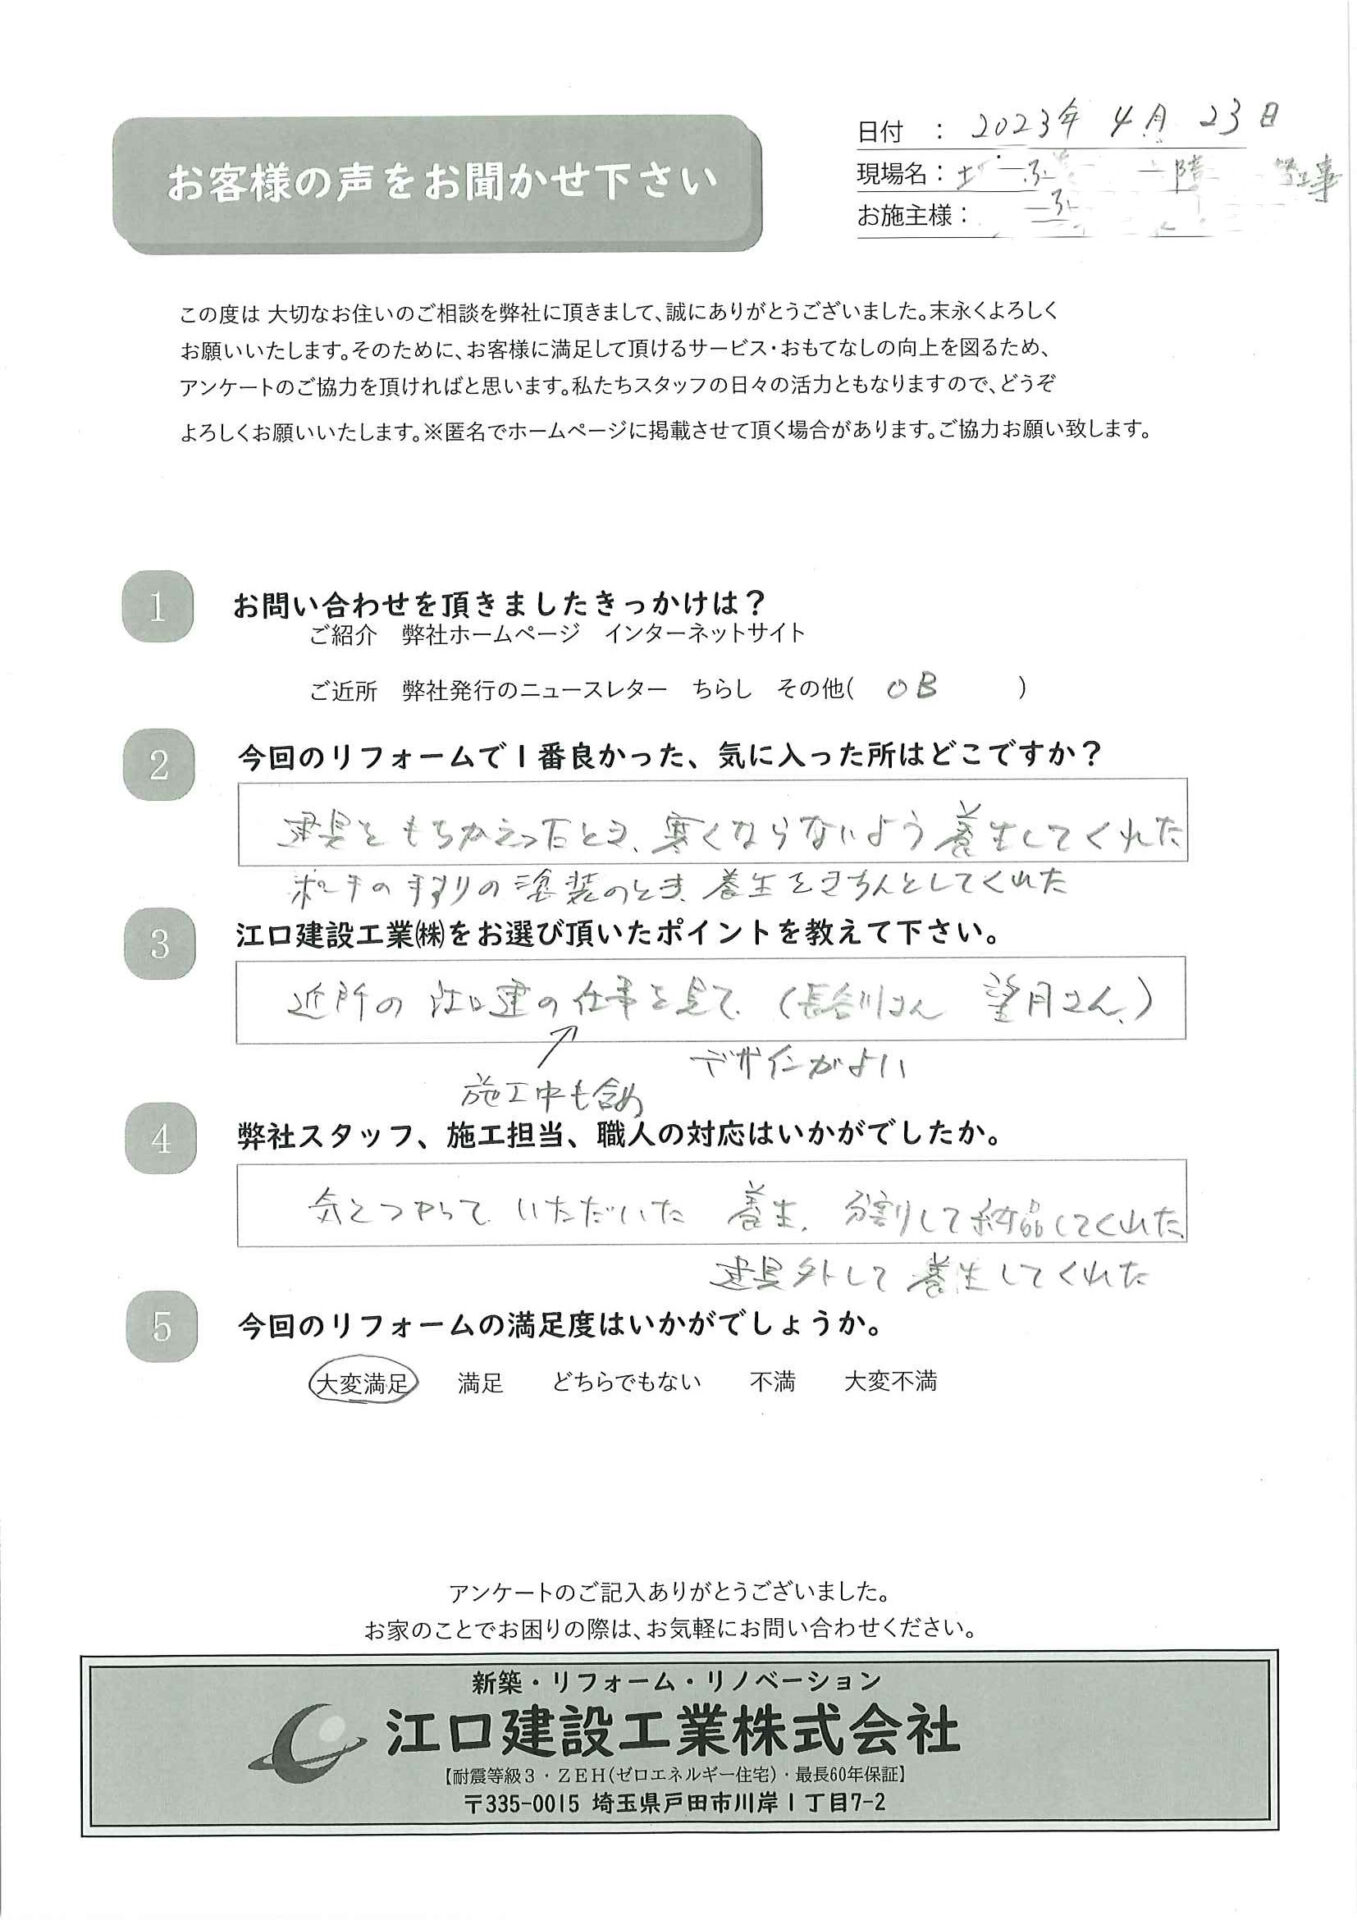 お客様の声をお聞かせ下さい
日付 : 2023年 4月 23日
現場名: 工事
お施主様:
この度は 大切なお住いのご相談を弊社に頂きまして、誠にありがとうございました。末永くよろしく
お願いいたします。そのために、お客様に満足して頂けるサービス・おもてなしの向上を図るため、
アンケートのご協力を頂ければと思います。私たちスタッフの日々の活力ともなりますので、どうぞ
よろしくお願いいたします。※匿名でホームページに掲載させて頂く場合があります。ご協力お願い致します。
1 お問い合わせを頂きましたきっかけは？
ご紹介 弊社ホームページ インターネットサイト
ご近所 弊社発行のニュースレター ちらし その他( OB )
2 今回のリフォームで1番良かった、気に入った所はどこですか？
建具をもちかえったとき、寒くならないよう養生してくれた
ポーチの手すりの塗装のとき、養生をきちんとしてくれた
3 江口建設工業㈱をお選び頂いたポイントを教えて下さい。
近所の江口建の仕事を見て、(長谷川さん 望月さん、)
デザインがよい
施工中も含め
4 弊社スタッフ、施工担当、職人の対応はいかがでしたか。
気をつかっていただいた 養生、分割りして納品してくれた、
建具外して養生してくれた
5 今回のリフォームの満足度はいかがでしょうか。
大変満足 満足 どちらでもない 不満 大変不満
アンケートのご記入ありがとうございました。
お家のことでお困りの際は、お気軽にお問い合わせください。
新築・リフォーム・リノベーション
江口建設工業株式会社
【耐震等級３・ＺＥＨ(ゼロエネルギー住宅)・最長60年保証】
〒335-0015 埼玉県戸田市川岸1丁目7-2